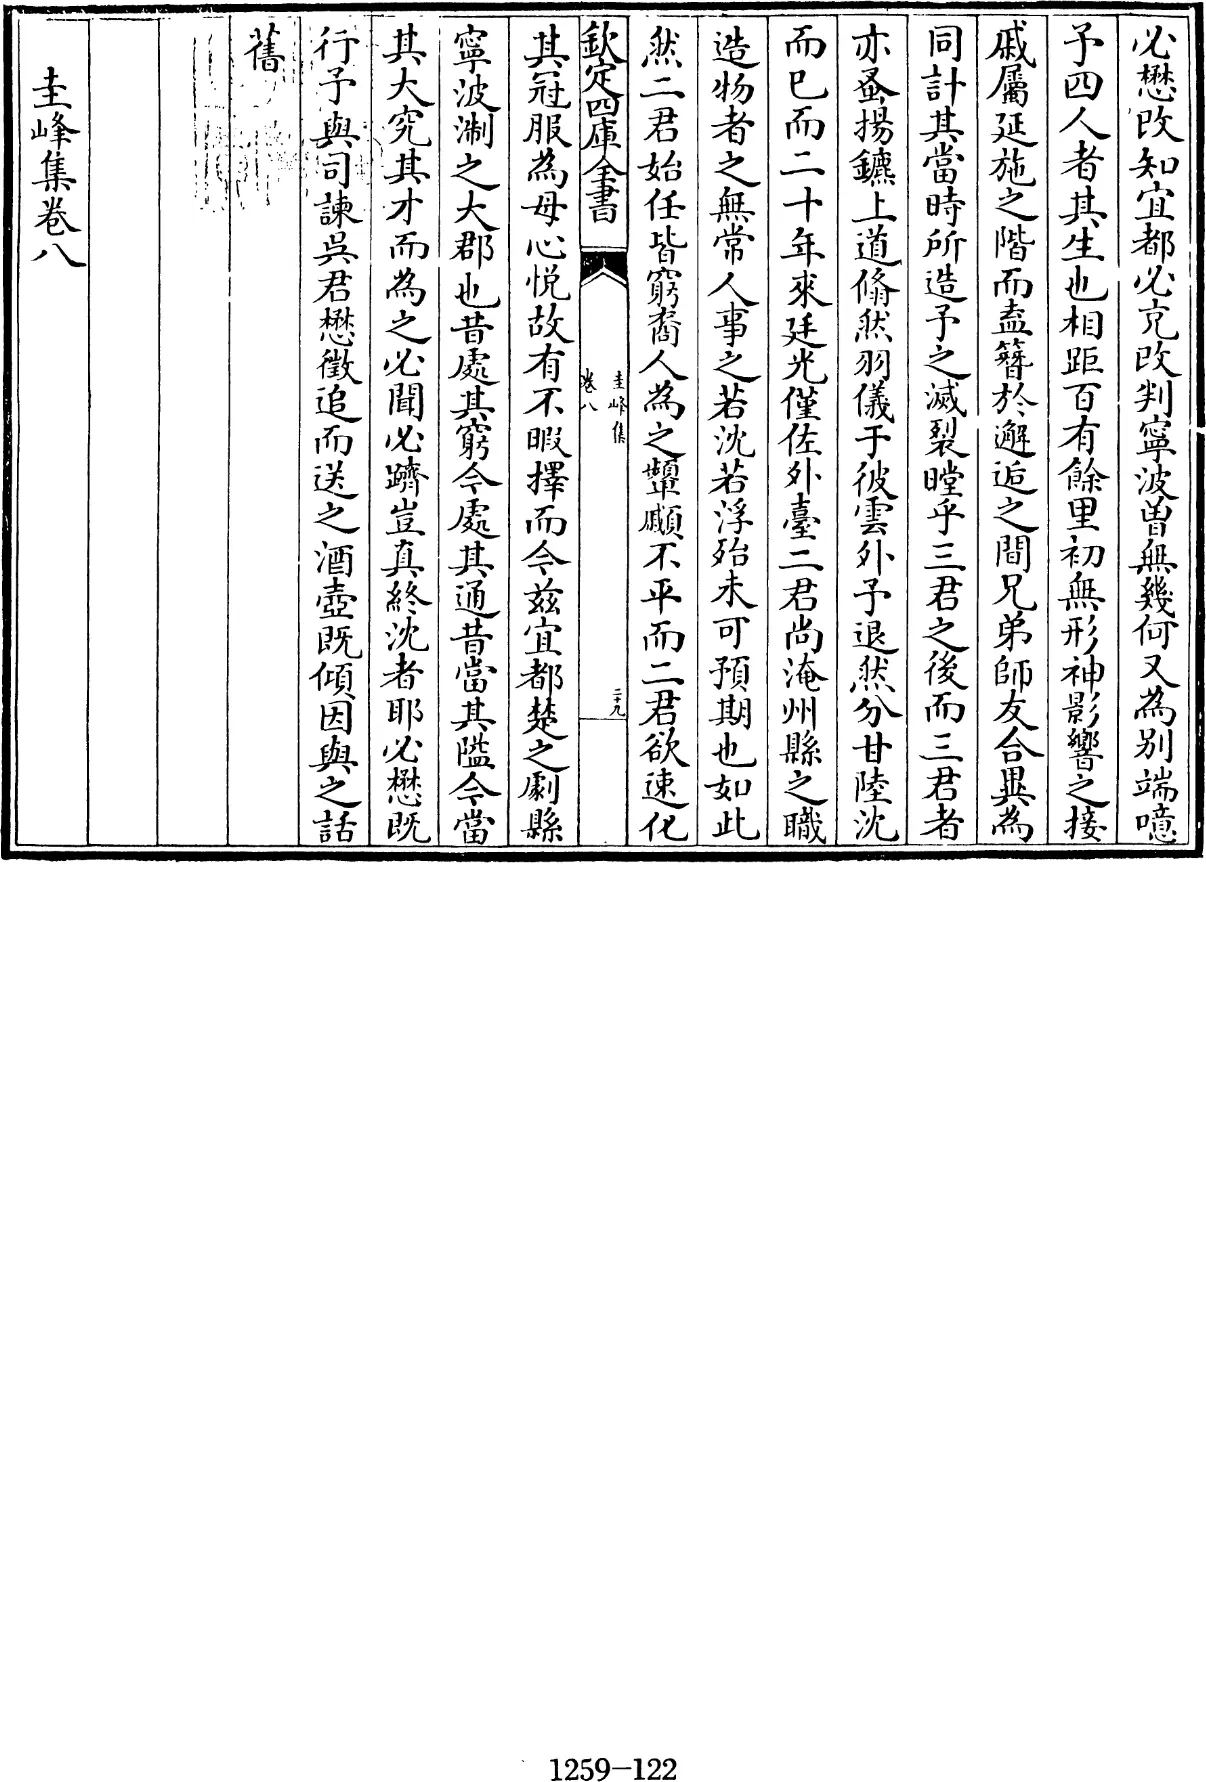 必懋改知宜都必亮改判寧波曽無幾何又為别端噫
予四人者其生也相距百有餘里初無形神影響之接
戚屬延施之階而盍簮於邂逅之間兄弟師友合異為
同計其當時所造予之滅裂瞠乎三君之後而三君者
亦蚤揚鑣上道翛然羽儀于彼雲外予退然分甘陸沈
而已而二十年來廷光僅佐外臺二君尚淹州縣之職
造物者之無常人事之若沈若浮殆未可預期也如此
然二君始任皆窮裔人為之顰顣不平而二君欲速化
欽定四庫全書
圭峰集
卷八
二十九
其冠服為母心悦故有不暇擇而今兹宜都楚之劇縣
寧波淛之大郡也昔處其窮今處其通昔當其隘今當
其大究其才而為之必聞必躋豈真終沈者耶必懋既
行予與司諫吳君懋徵追而送之酒壺既傾因與之話
舊
圭峰集卷八
1259-122